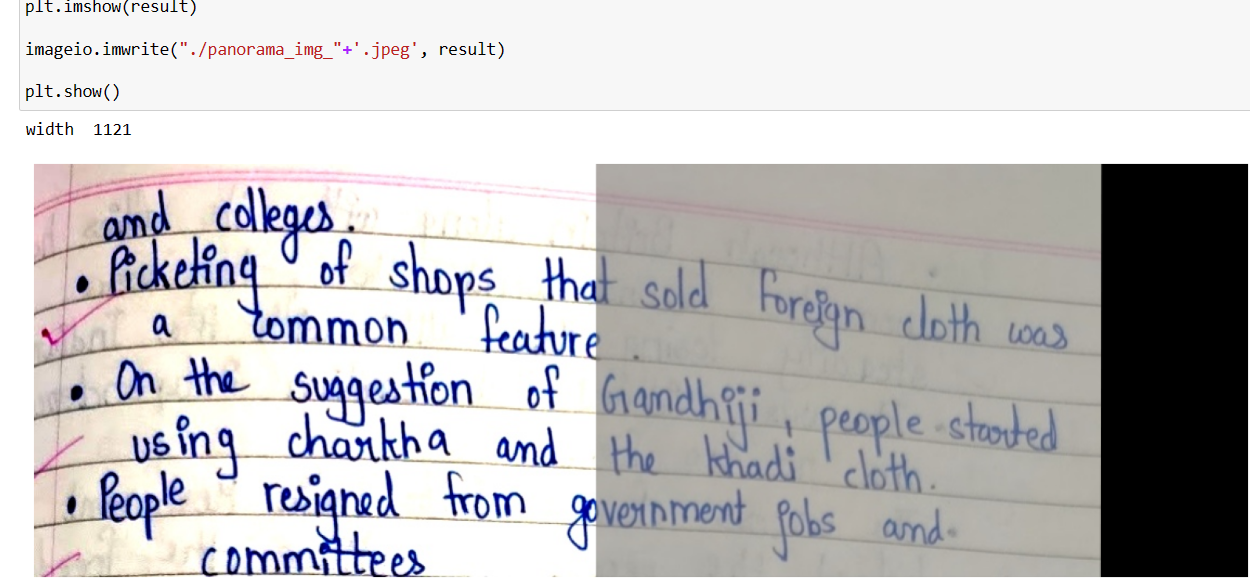 plt.imshow(result)
imageio.imwrite("./panorama_img_"+'.jpeg', result)
plt.show()
width 1121
and colleges.
• Picketing of shops that sold foreign cloth was
a common feature.
• On the suggestion of Gandhiji, people started
using charkha and the khadi cloth.
• People resigned from government jobs and
committees